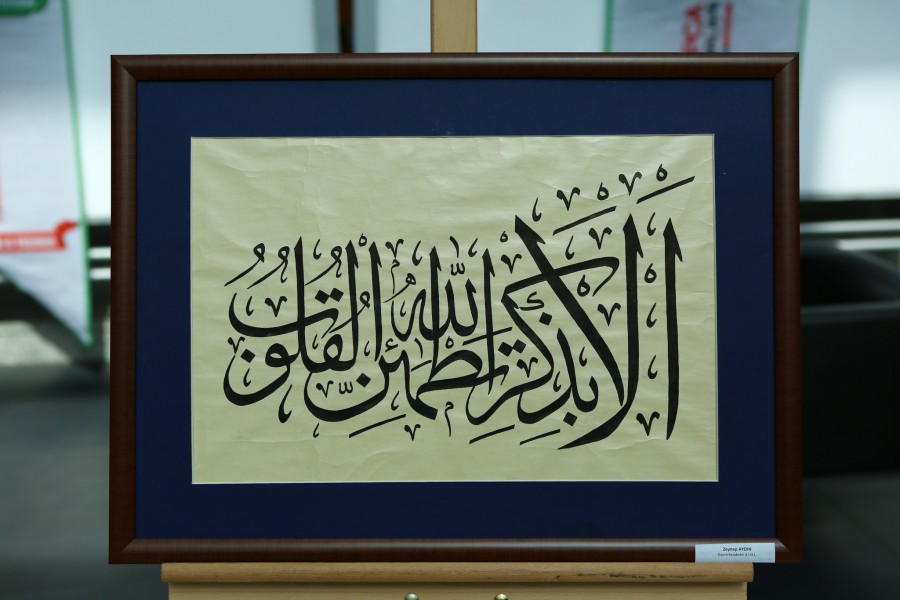 أَلَا بِذِكْرِ اللَّهِ تَطْمَئِنُّ الْقُلُوبُ
Zeynep AYDIN